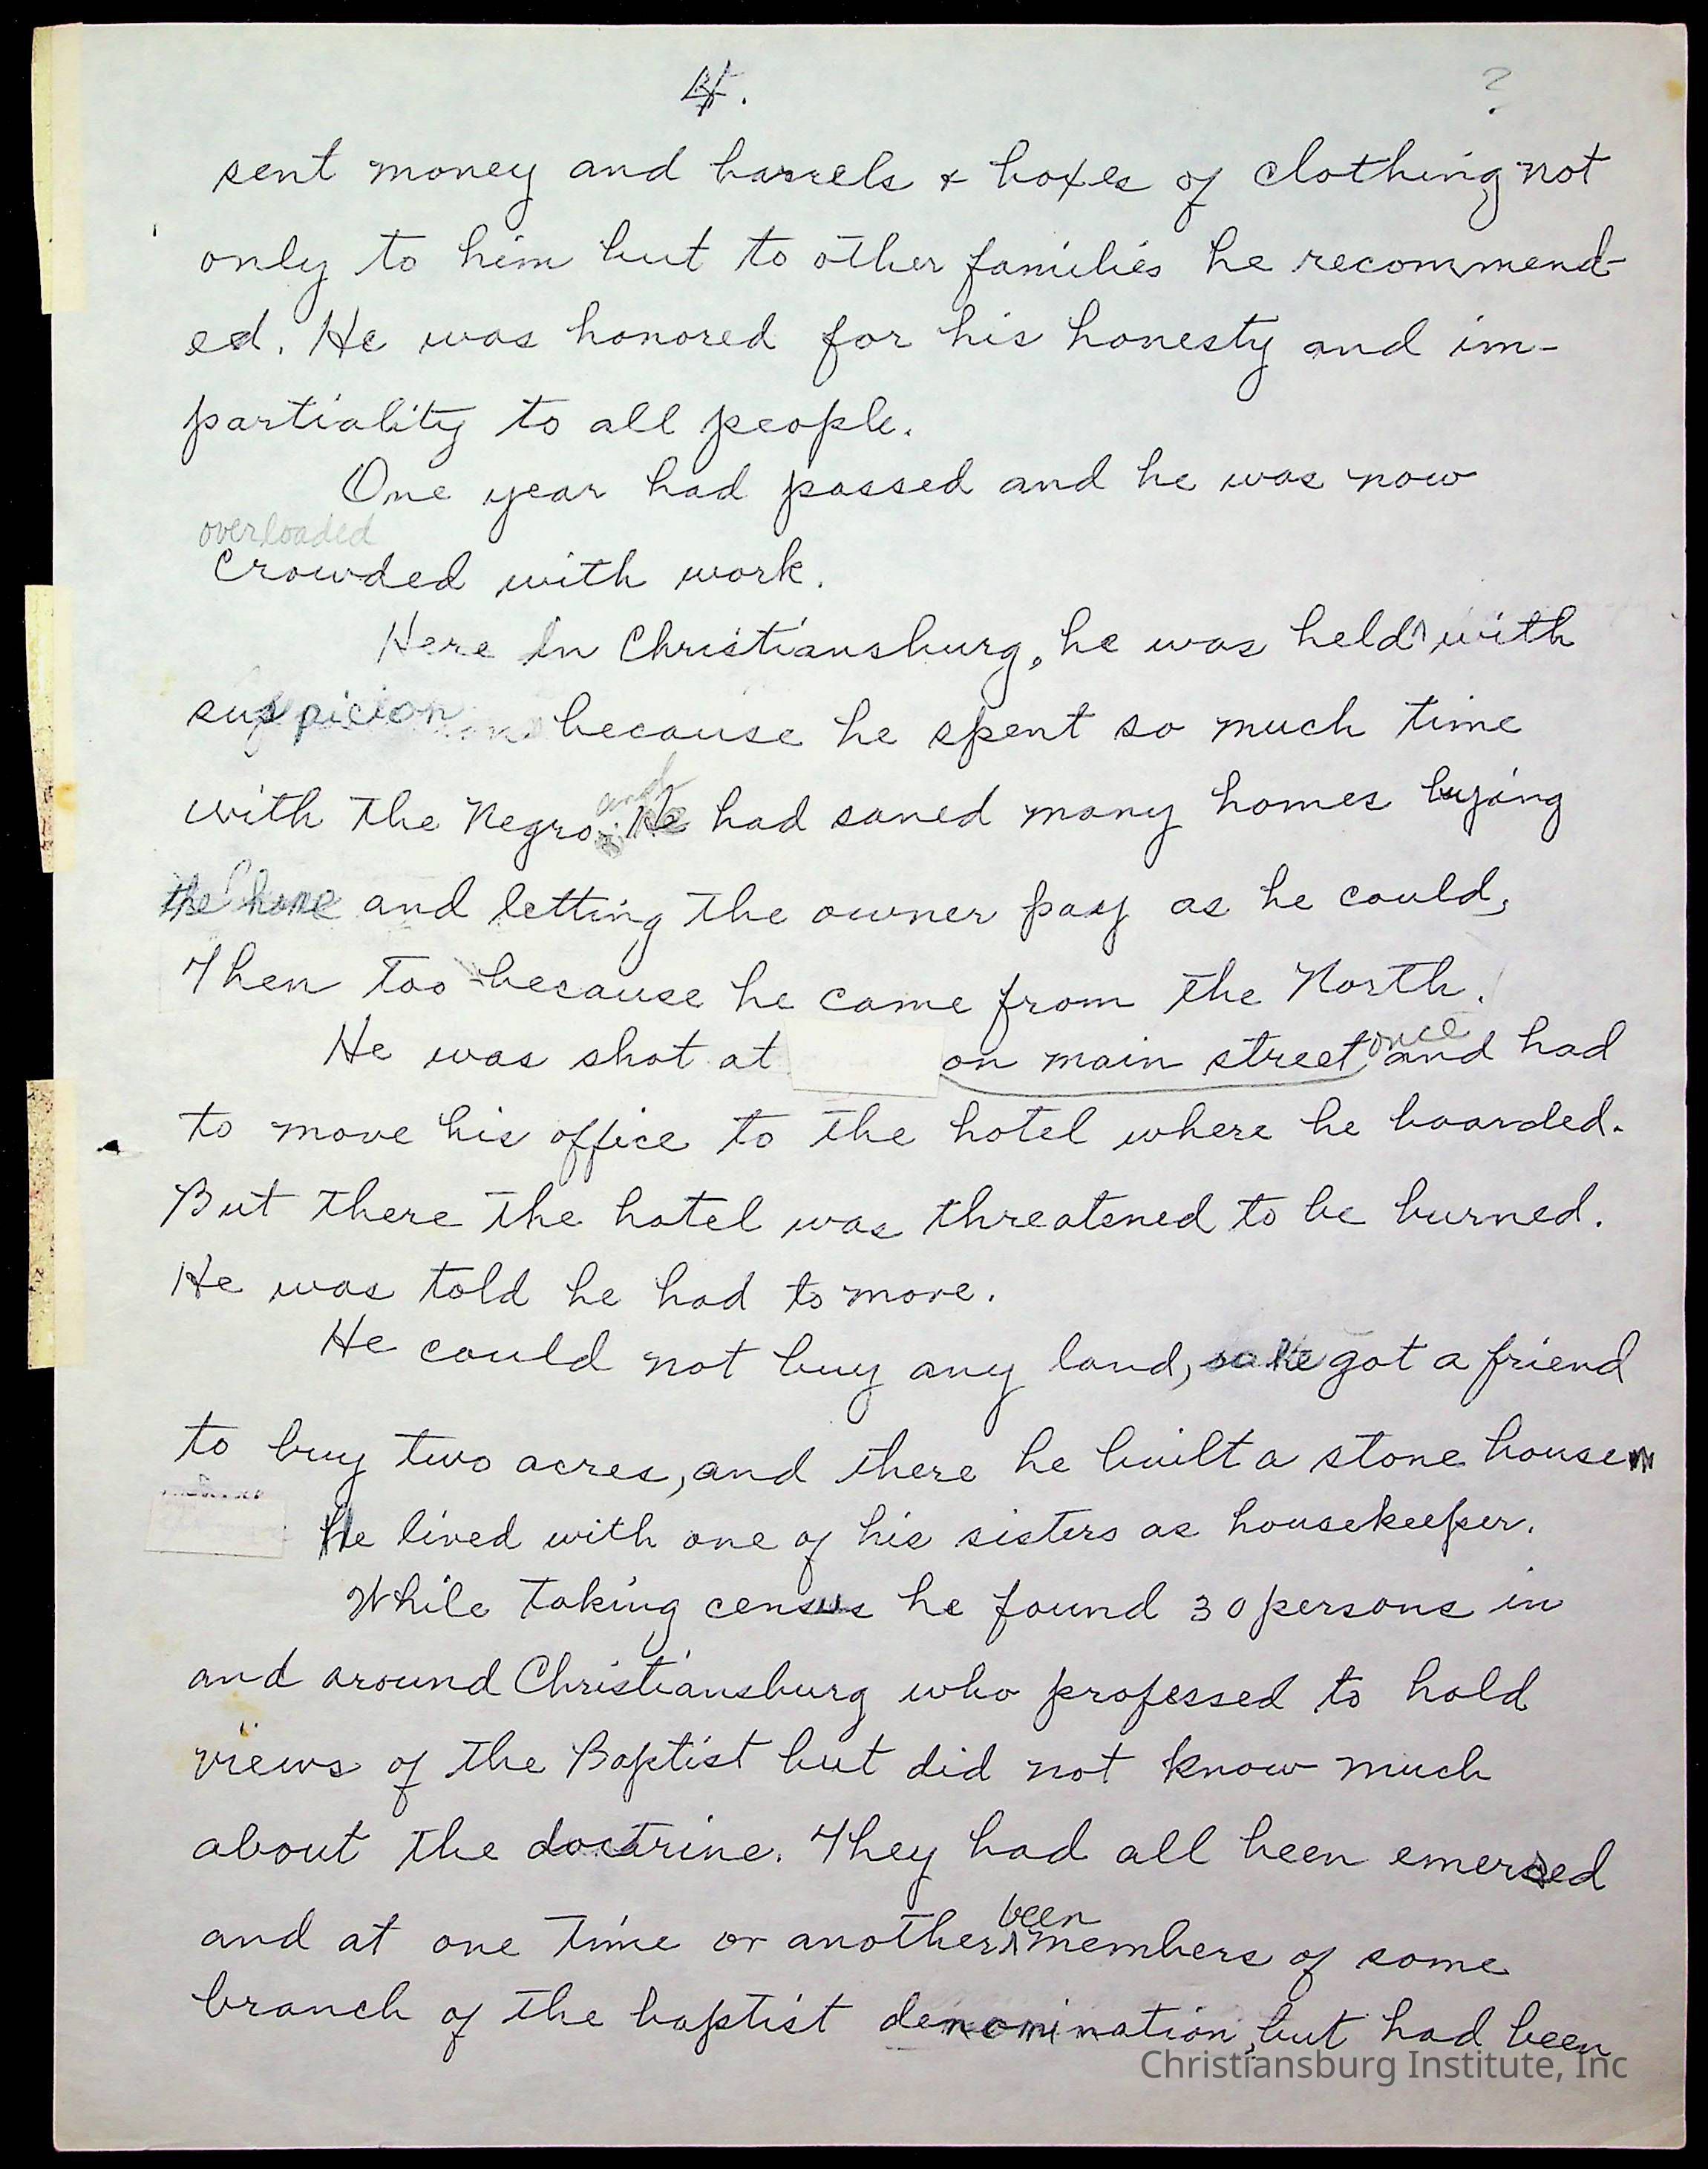 4.
?
sent money and barrels & boxes of clothing not
only to him but to other families he recommend-
ed. He was honored for his honesty and im-
partiality to all people.
One year had passed and he was now
overloaded
crowded with work.
Here in Christiansburg, he was held with
suspicion because he spent so much time
and
with the Negro. He had saved many homes buying
the home and letting the owner pay as he could,
Then too because he came from the North.
once
He was shot at on main street and had
to move his office to the hotel where he boarded.
But there the hotel was threatened to be burned.
He was told he had to move.
He could not buy any land, so he got a friend
to buy two acres, and there he built a stone house
He lived with one of his sisters as housekeeper.
While taking census he found 30 persons in
and around Christiansburg who professed to hold
views of the Baptist but did not know much
about the doctrine. They had all been emersed
been
and at one time or another members of some
branch of the baptist denomination, but had been
Christiansburg Institute, Inc